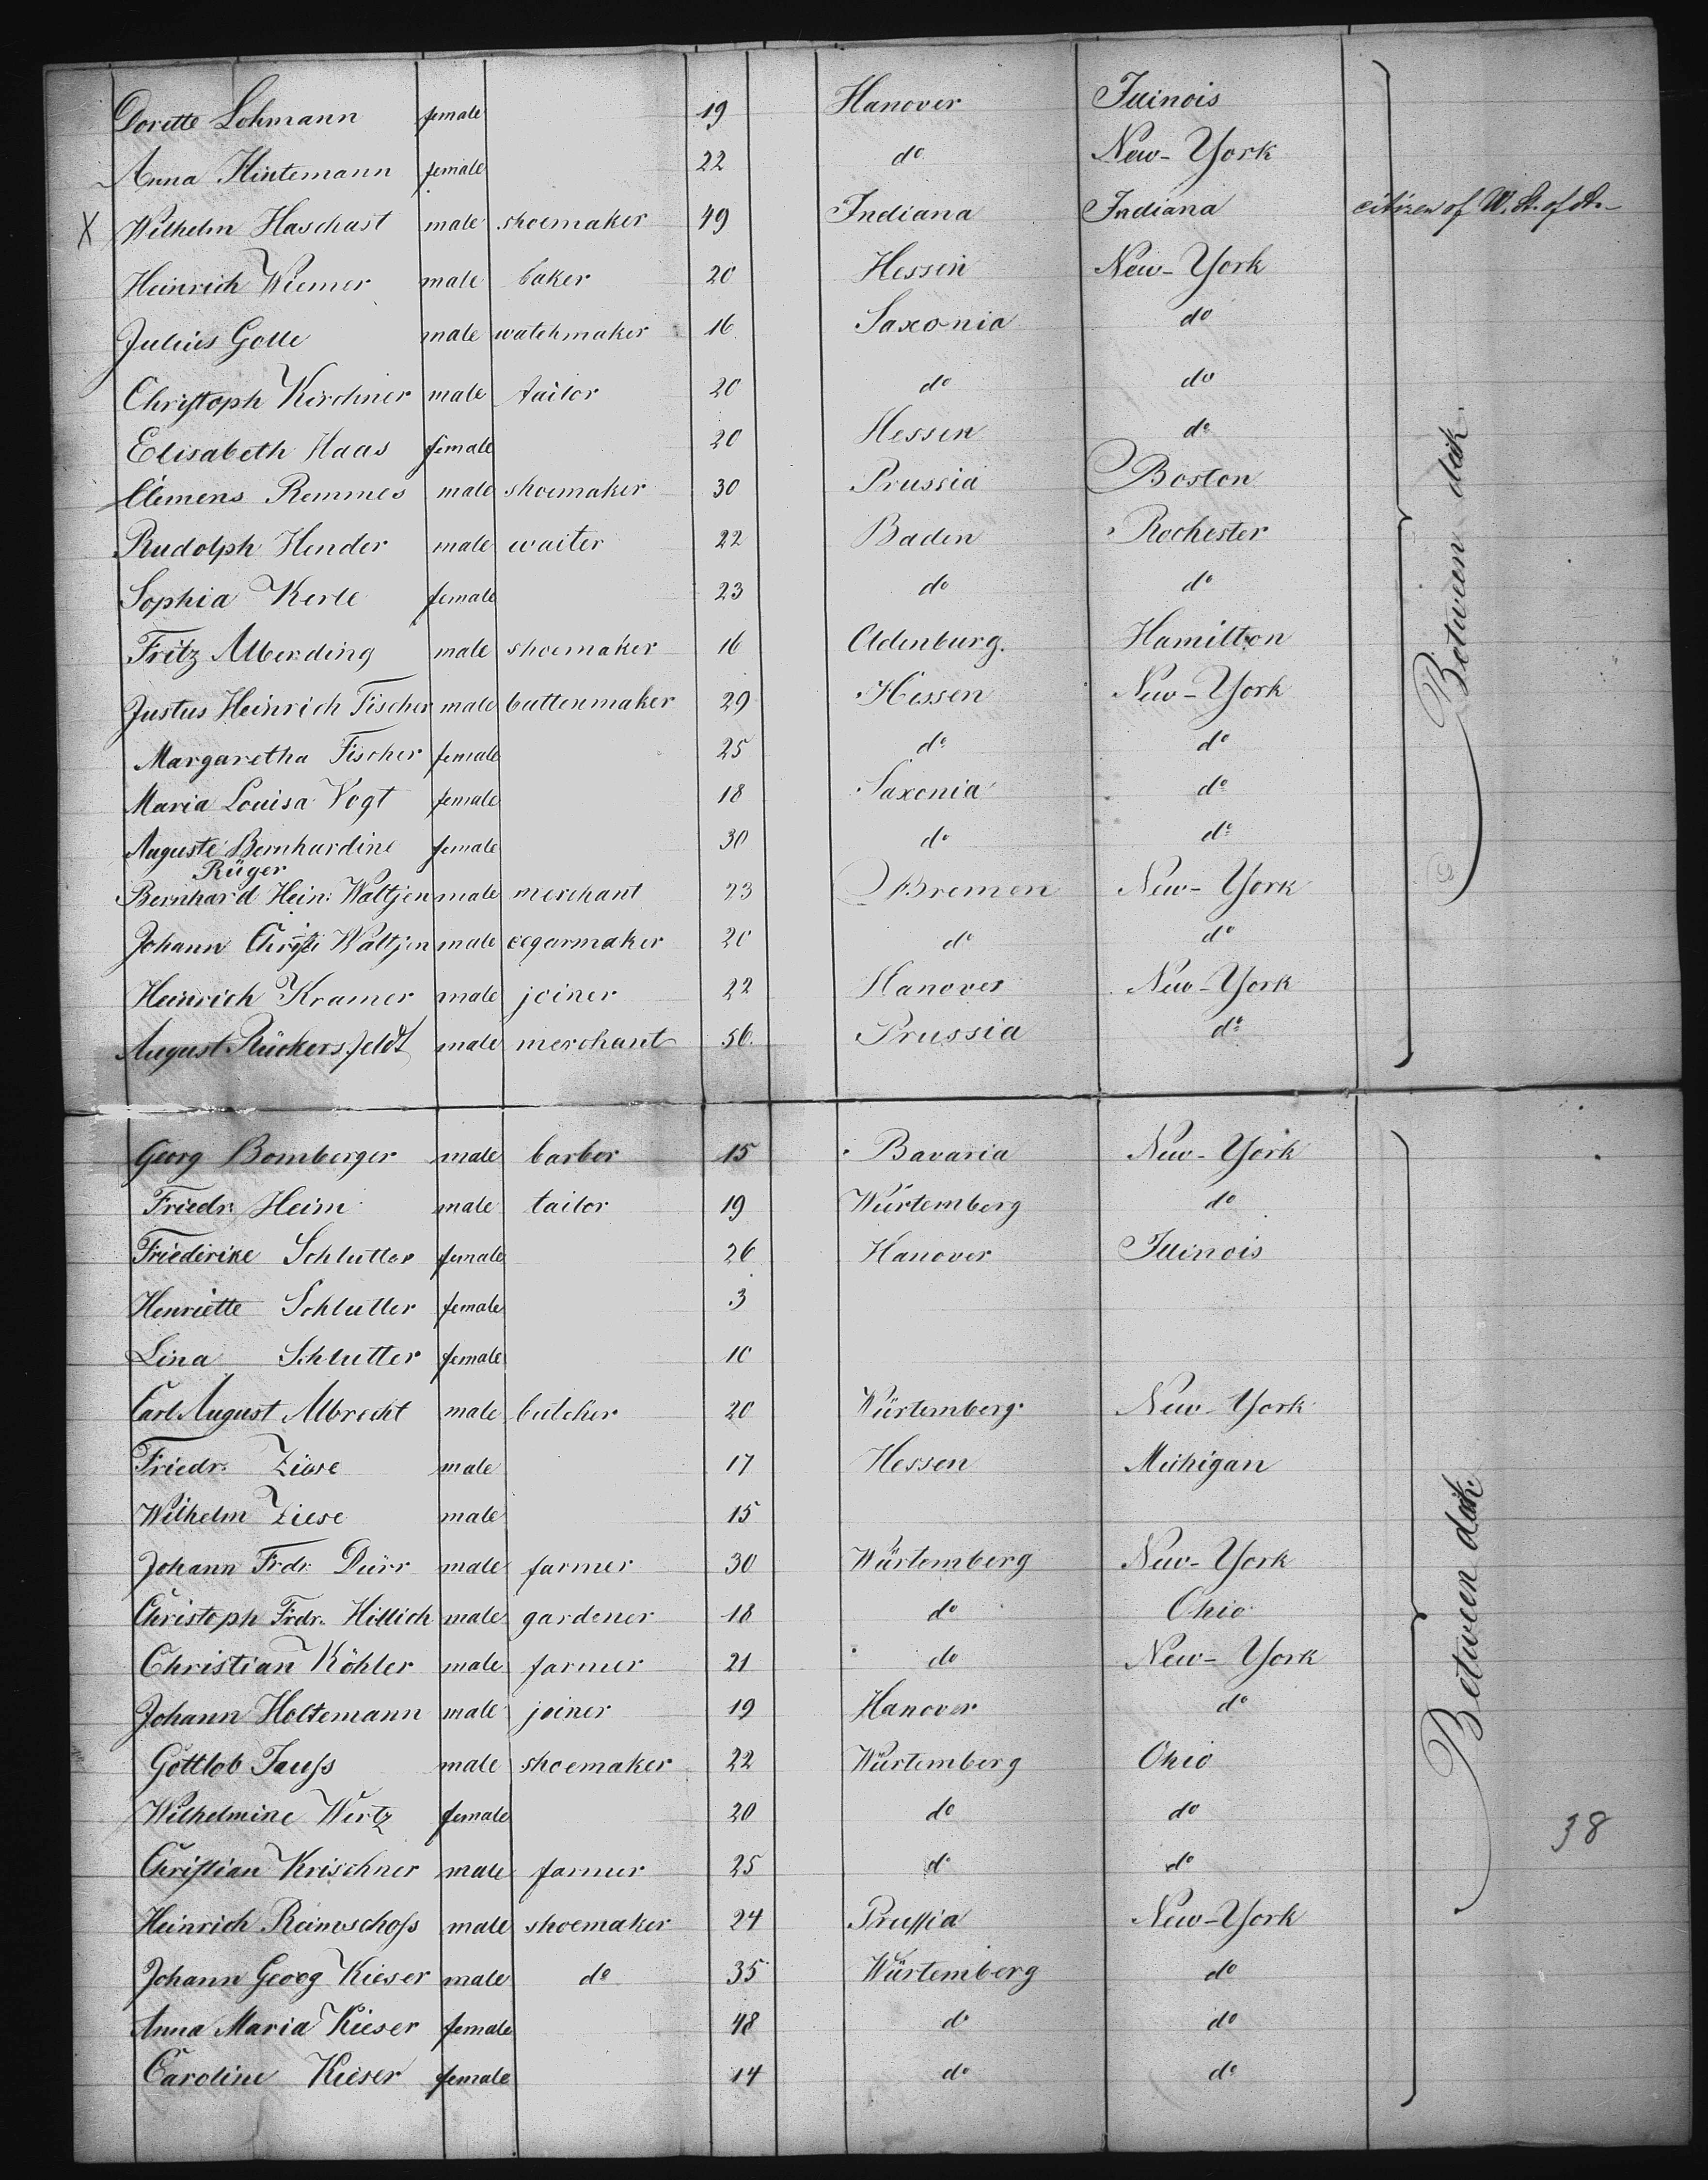 Dorette Lohmann female 19 Hanover Illinois
Anna Hintemann female 22 do New-York
X Wilhelm Haschast male shoemaker 49 Indiana Indiana citizen of U. St. of A.
Heinrich Wiemer male baker 20 Hessen New-York
Julius Golle male watchmaker 16 Saxonia do
Christoph Kirchner male tailor 20 do do
Elisabeth Haas female 20 Hessen do
Clemens Remmes male shoemaker 30 Prussia Boston
Rudolph Hender male waiter 22 Baden Rochester
Sophia Kerle female 23 do do
Fritz Alberding male shoemaker 16 Oldenburg. Hamilton
Justus Heinrich Fischer male buttenmaker 29 Hessen New-York
Margaretha Fischer female 25 do do
Maria Louisa Vogt female 18 Saxonia do
Auguste Bernhardine female 30 do do
Rüger
Bernhard Hein: Waltjen male merchant 23 Bremen New-York
Johann Waltjen male cegarmaker 20 do do
Heinrich Kramer male joiner 22 Hanover New-York
August Rückersfeldt male merchant 56. Prussia do
Between deck.
Georg Bomberger male barber 15 Bavaria New-York
Friedr. Heim male tailor 19 Würtemberg do
Friederike Schlutter female 26 Hanover Illinois
Henriette Schlutter female 3
Lina Schlutter female 10
Carl August Albrecht male butcher 20 Würtemberg New-York
Friedr. Ziese male 17 Hessen Michigan
Wilhelm Ziese male 15
Johann Frdr. Dürr male farmer 30 Würtemberg New-York
Christoph Frdr. Hillich male gardener 18 do Ohio
Christian Köhler male farmer 21 do New-York
Johann Holtemann male joiner 19 Hanover do
Gottlob Tauss male shoemaker 22 Würtemberg Ohio
Wilhelmine Wertz female 20 do do
Christian Krischner male farmer 25 do do
Heinrich Reimschoss male shoemaker 24 Prussia New-York
Johann Georg Kieser male do 35 Würtemberg do
Anna Maria Kieser female 48 do do
Caroline Kieser female 14 do do
Between deck
38